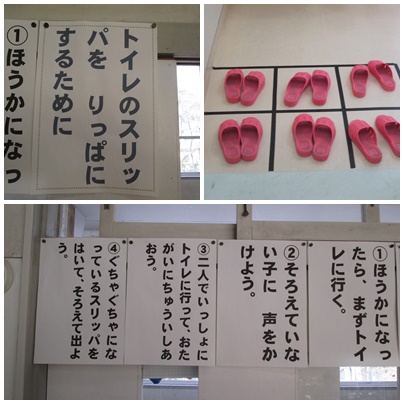 トイレのスリッ
パを　りっぱに
するために
①ほうかになっ
①ほうかになっ
たら、まずトイ
レに行く。
②そろえていな
い子に　声をか
けよう。
③二人でいっしょに
トイレに行って、おた
がいにちゅういしあ
おう。
④ぐちゃぐちゃにな
っているスリッパを
はいて、そろえて出よ
う。